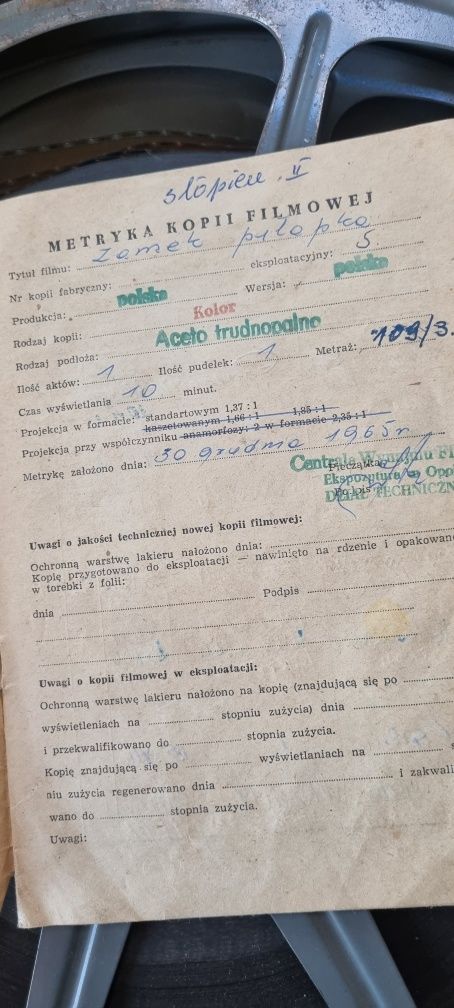 stopień II
METRYKA KOPII FILMOWEJ
Tytuł filmu: Zamek pułapka
Nr kopii fabryczny: eksploatacyjny: 5
Produkcja: polska Wersja: polska
Rodzaj kopii: Kolor
Rodzaj podłoża: Aceto trudnopalne
Ilość aktów: 1 Ilość pudełek: 1 Metraż: 109/3.
Czas wyświetlania 10 minut.
Projekcja w formacie: standartowym 1,37 : 1
kaszetowanym 1,66 : 1 1,85 : 1
Projekcja przy współczynniku anamorfozy: 2 w formacie 2,35 : 1
Metrykę założono dnia: 30 grudnia 1965 r.
Centrala Wynajmu Fi
Pieczątka
Ekspozytura w Opo
Podpis
DZIAŁ TECHNICZN
Uwagi o jakości technicznej nowej kopii filmowej:
Ochronną warstwę lakieru nałożono dnia:
Kopię przygotowano do eksploatacji — nawinięto na rdzenie i opakowano
w torebki z folii:
dnia Podpis
Uwagi o kopii filmowej w eksploatacji:
Ochronną warstwę lakieru nałożono na kopię (znajdującą się po
wyświetleniach na stopniu zużycia) dnia
i przekwalifikowano do stopnia zużycia.
Kopię znajdującą się po wyświetlaniach na s
niu zużycia regenerowano dnia i zakwali
wano do stopnia zużycia.
Uwagi: